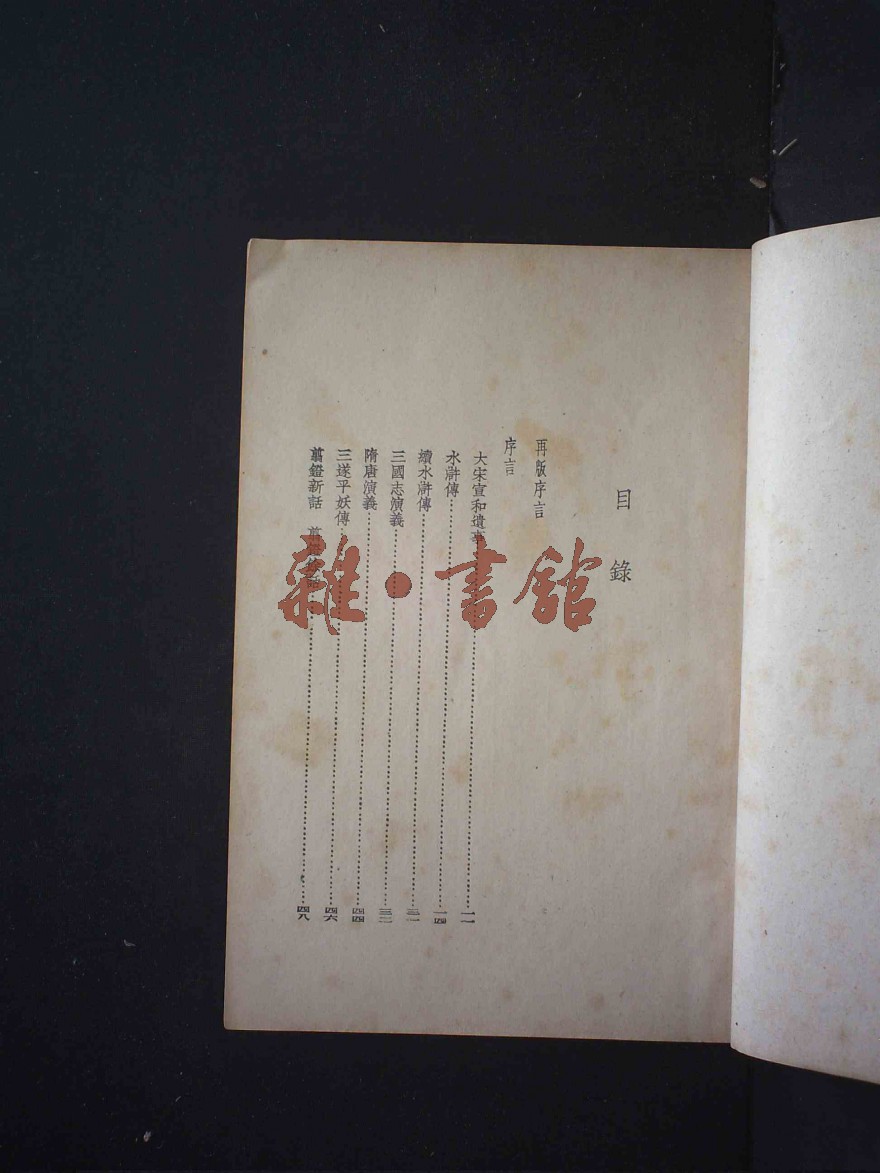 目錄
再版序言
序言
大宋宣和遺事
水滸傳 一四
續水滸傳
三國志演義
隋唐演義 四四
三遂平妖傳 四六
翦鐙新話 翦鐙餘話 四八
雜·書館